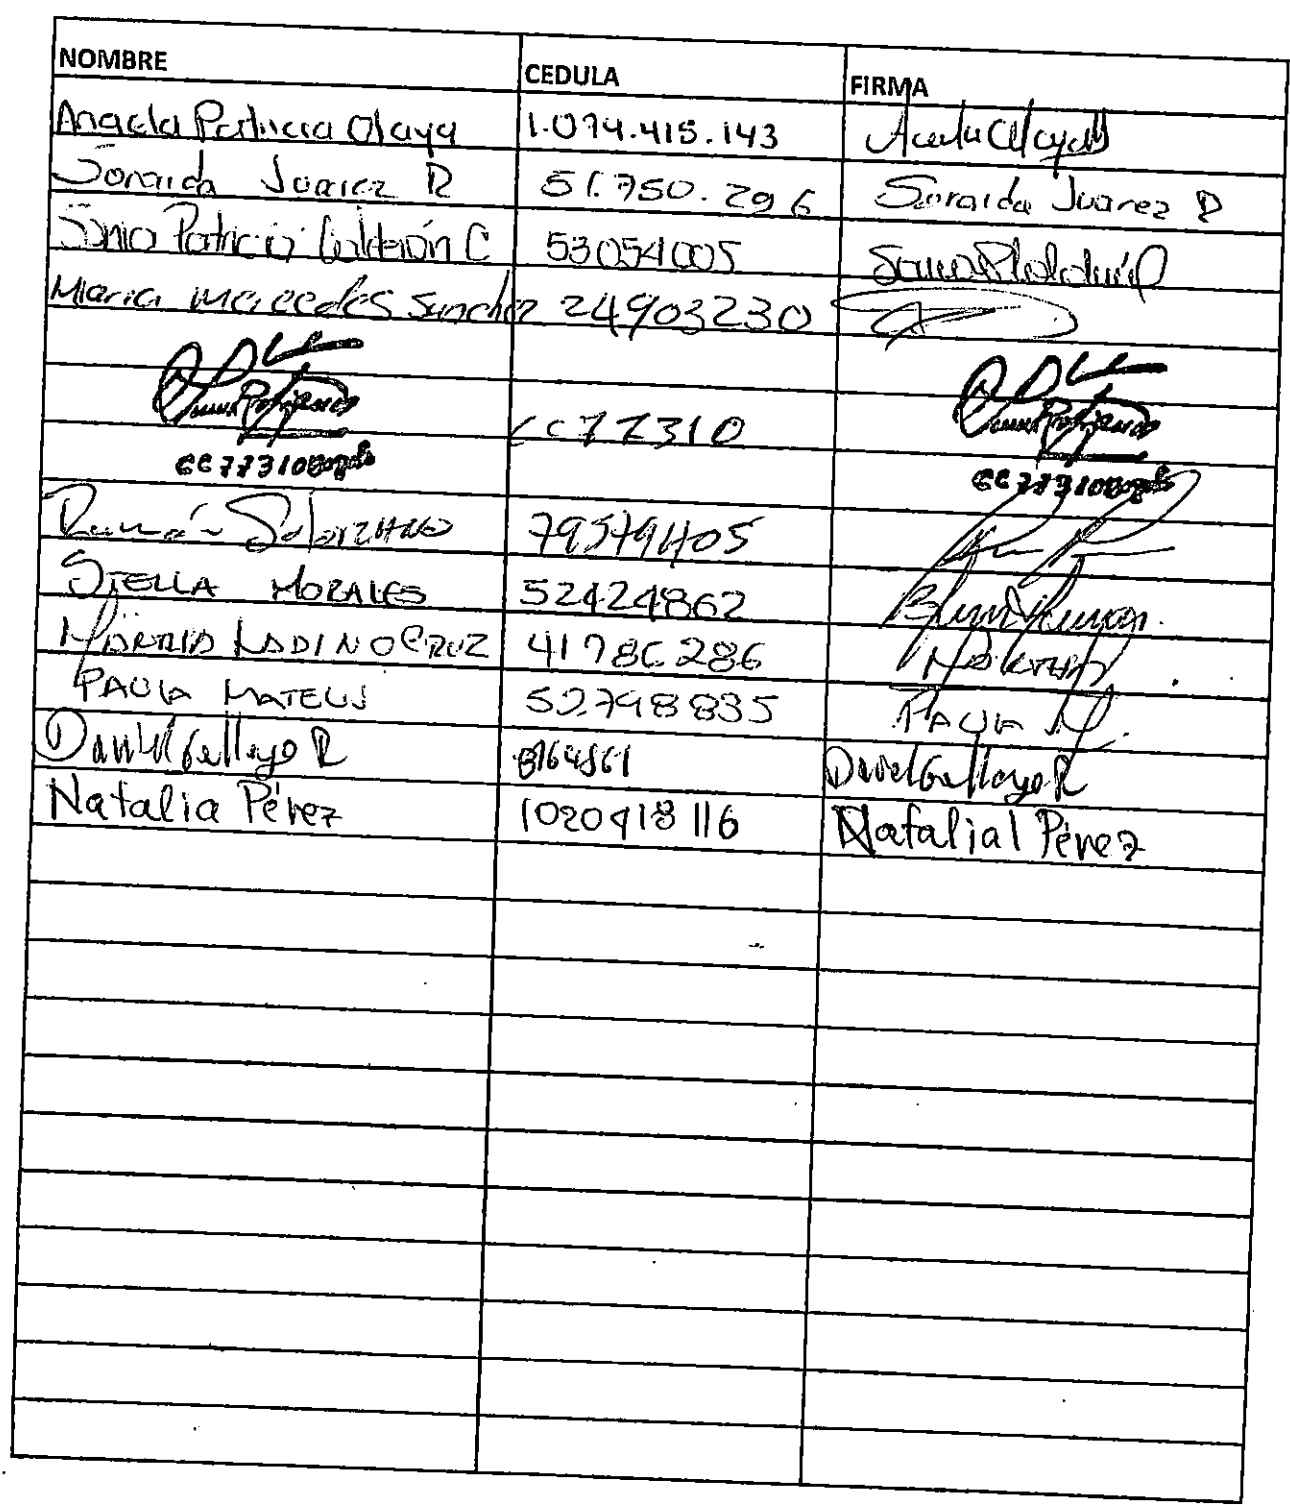 NOMBRE CEDULA FIRMA
Angela Patricia Olaya 1.074.415.143
Soraida Juarez R 51.750.296 Soraida Juarez R
Sonia Patricia Calderón C 53054005
Maria Mercedes Sanchez 24903230
CC 77310
CC 77310 Bogota CC 77310 Bogota
Ramón Solorzano 79579405
STELLA MORALES 52424862
LADINO CRUZ 41786286
PAULA MATEUS 52798835 PAULA M.
Daniel Gallego R 8164861 Daniel Gallego R
Natalia Pérez 1020418116 Natalia Pérez